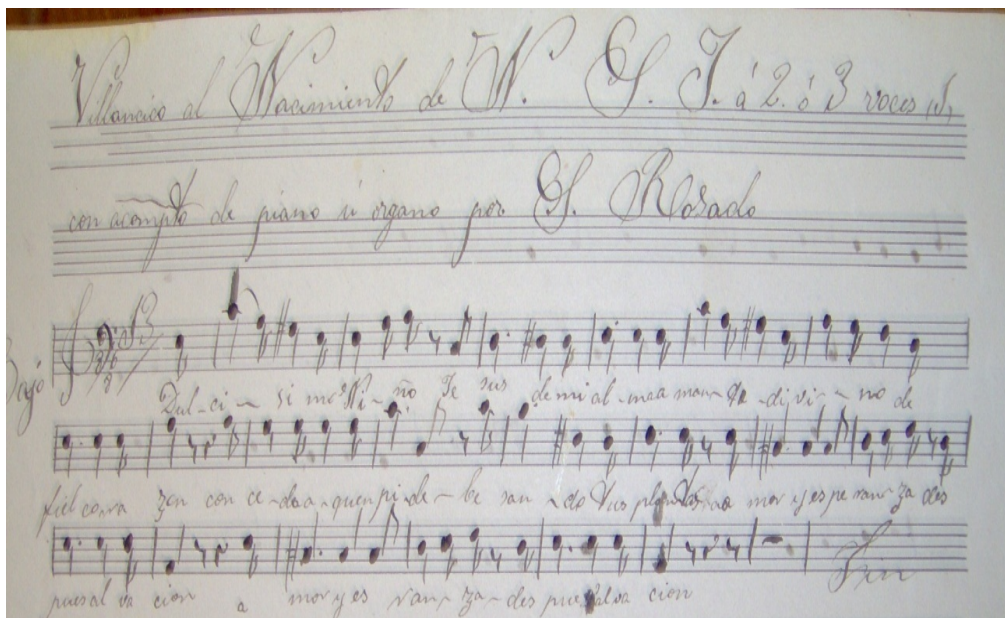 Villancico al Nacimiento de N. S. J. á 2. ó 3 voces
con acompto de piano ú órgano por S. Rosado
Bajo
Dul-ci - si mo Ni - ño Je sus de mi al - maa man - te - di vi - no de
fiel cora zon con ce - daa - quen pi - de - be san - do tus plantas a mor y espe ran - za des
pues al va cion a mor y es ran - za - des pues alva cion
Fin